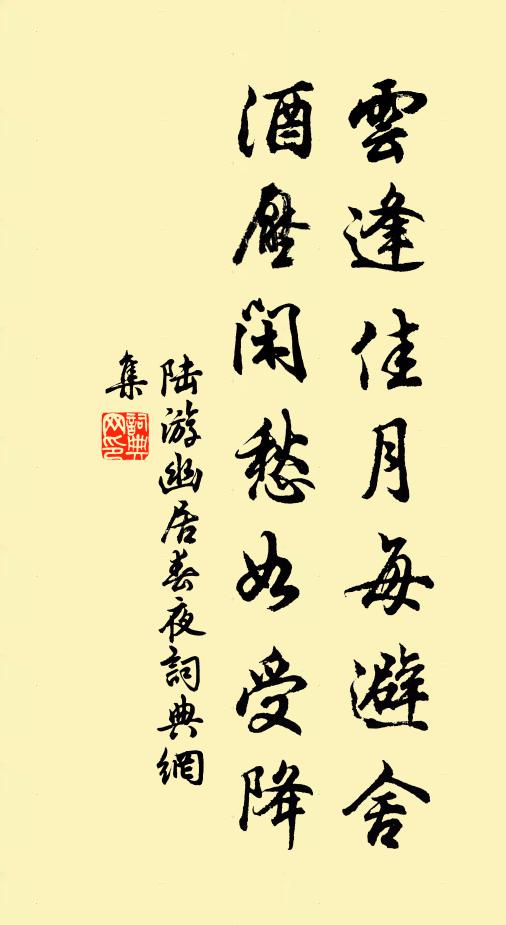 雲逢佳月每避舍
酒壓閑愁如受降
陆游幽居春夜詞典網
集
詞典網印